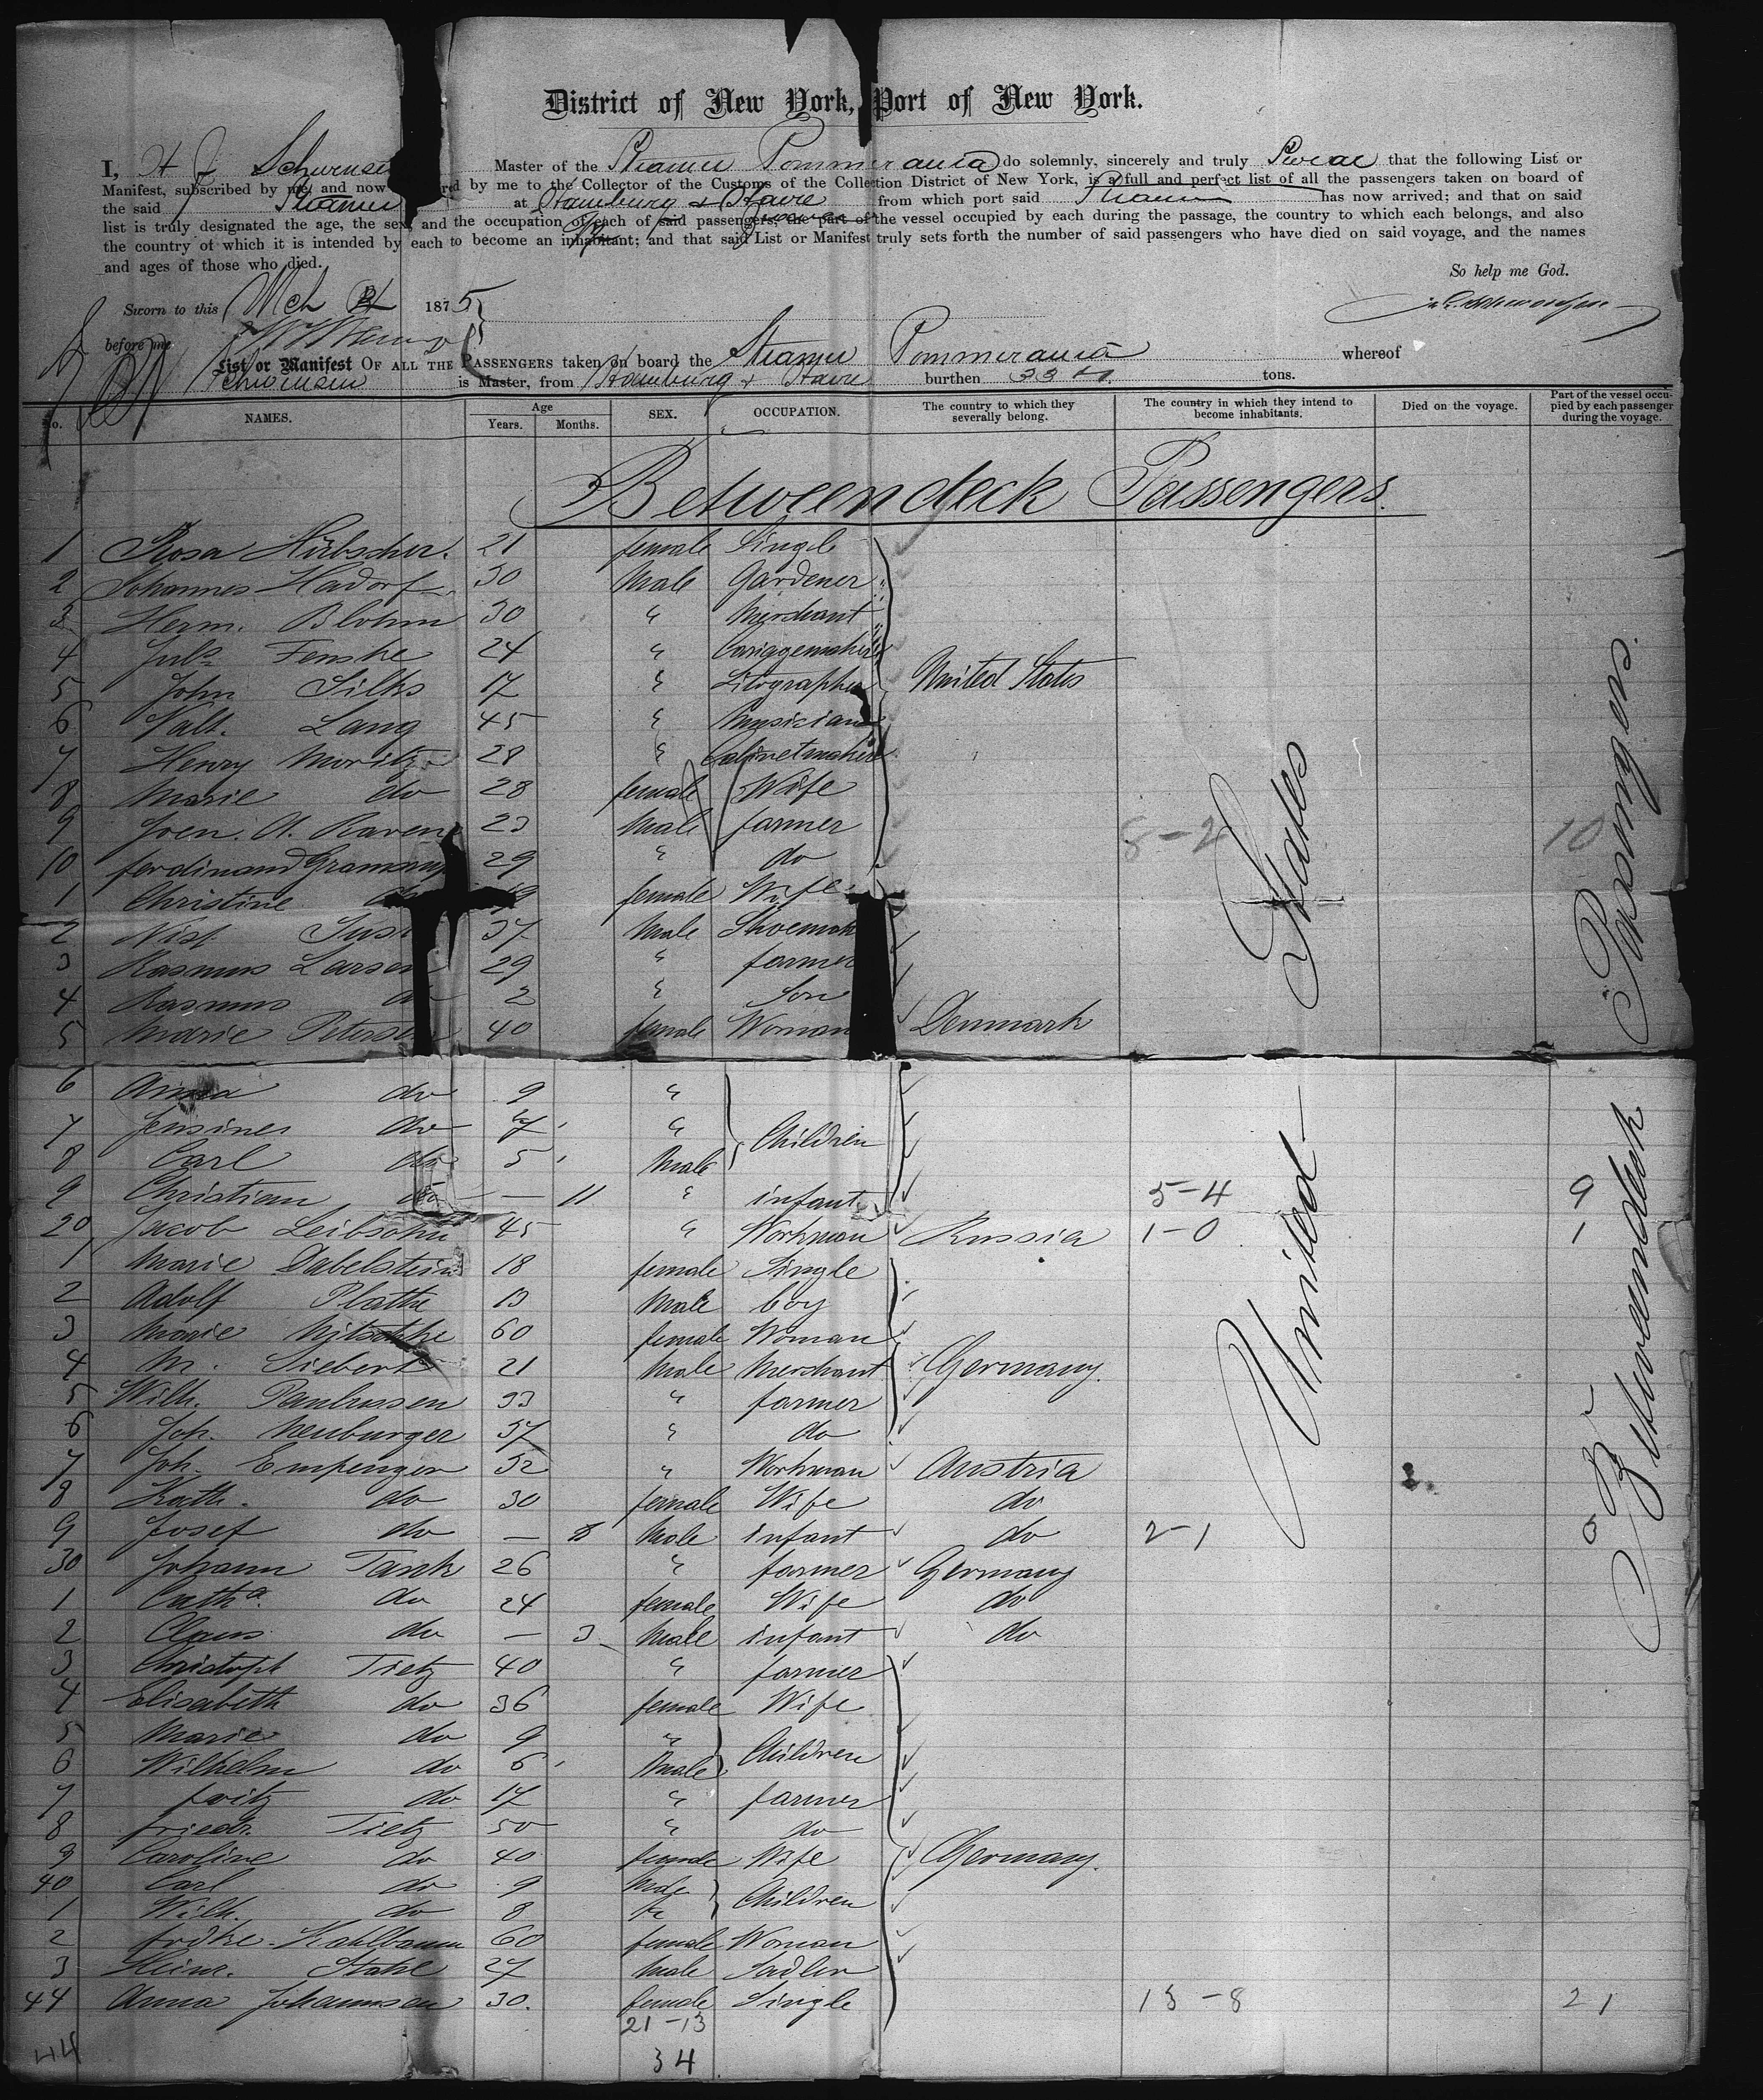 District of New York, Port of New York.
I, H J Schwensen Master of the Steamer Pommerania do solemnly, sincerely and truly Swear that the following List or
Manifest, subscribed by me, and now by me to the Collector of the Customs of the Collection District of New York, is a full and perfect list of all the passengers taken on board of
the said Steamer at Hamburg & Havre from which port said Steamer has now arrived; and that on said
list is truly designated the age, the sex, and the occupation of each of said passengers, the part of the vessel occupied by each during the passage, the country to which each belongs, and also
the country of which it is intended by each to become an inhabitant; and that said List or Manifest truly sets forth the number of said passengers who have died on said voyage, and the names
and ages of those who died.
So help me God.
Sworn to this Mch 1875
before me
List or Manifest OF ALL THE PASSENGERS taken on board the Steamer Pommerania whereof
Schwensen is Master, from Hamburg & Havre burthen tons.
No. NAMES. Age Years. Months. SEX. OCCUPATION. The country to which they severally belong. The country in which they intend to become inhabitants. Died on the voyage. Part of the vessel occupied by each passenger during the voyage.
Betweendeck Passengers.
1 Rosa Hübscher. 21 female Single
2 Johannes Hadorf 30 Male Gardener
3 Herm. Blohm 30 " Merchant
4 Juls Fenske 24 " Cariggemaker
5 John Silks 17 " Litographer United States
6 Valt. Lang 45 " Musician
7 Henry Moritz 28 " Cabinetmaker
8 Marie do 28 female Wife
9 Joen. A. Raven 23 Male farmer 8-2 10
10 Ferdinand 29 " do
1 Christine do 19 female Wife
2 37 Male Shoemak
3 Rasmus Larsen 29 " farmer
4 Rasmus do 2 " Son
5 Marie Petersen 40 female Woman Denmark
6 Anna do 9 "
7 Jensine do 7 " Children
8 Carl do 5 Male
9 Christian do — 11 " infant 5-4 9
20 Jacob Leibsohn 45 " Workman Russia 1-0 1
1 Marie Dabelstein 18 female Single
2 Adolf Plathe 13 Male boy
3 Marie Nitschke 60 female Woman
4 M. Siebert 21 Male Merchant Germany.
5 Wilh. Paulussen 33 " farmer
6 Joh. Neuburger 37 " do
7 Joh. Empenger 32 " Workman Austria
8 Kath. do 30 female Wife do
9 Josef do — 8 Male infant do 2-1
30 Johann Tank 26 " farmer Germany
1 Catha do 24 female Wife do
2 Claus do — 3 Male infant do
3 Christoph Tietz 40 " farmer
4 Elisabeth do 36 female Wife
5 Marie do 9 " Children
6 Wilhelm do 6 Male
7 Fritz do 17 " farmer
8 Friedr. Tietz 50 " do
9 Caroline do 40 female Wife Germany.
40 Carl do 9 Male Children
1 Wilh. do 8
2 Frdke. Kahlbaum 60 female Woman
3 Heinr. Stahl 27 Male Sadler
44 Anna Johannsen 30. female Single 13-8 21
21-13
44 34
United States
Betweendeck Passengers.